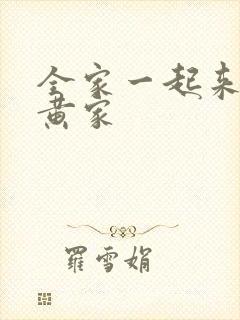 全家一起来
黄家
羅雪娟